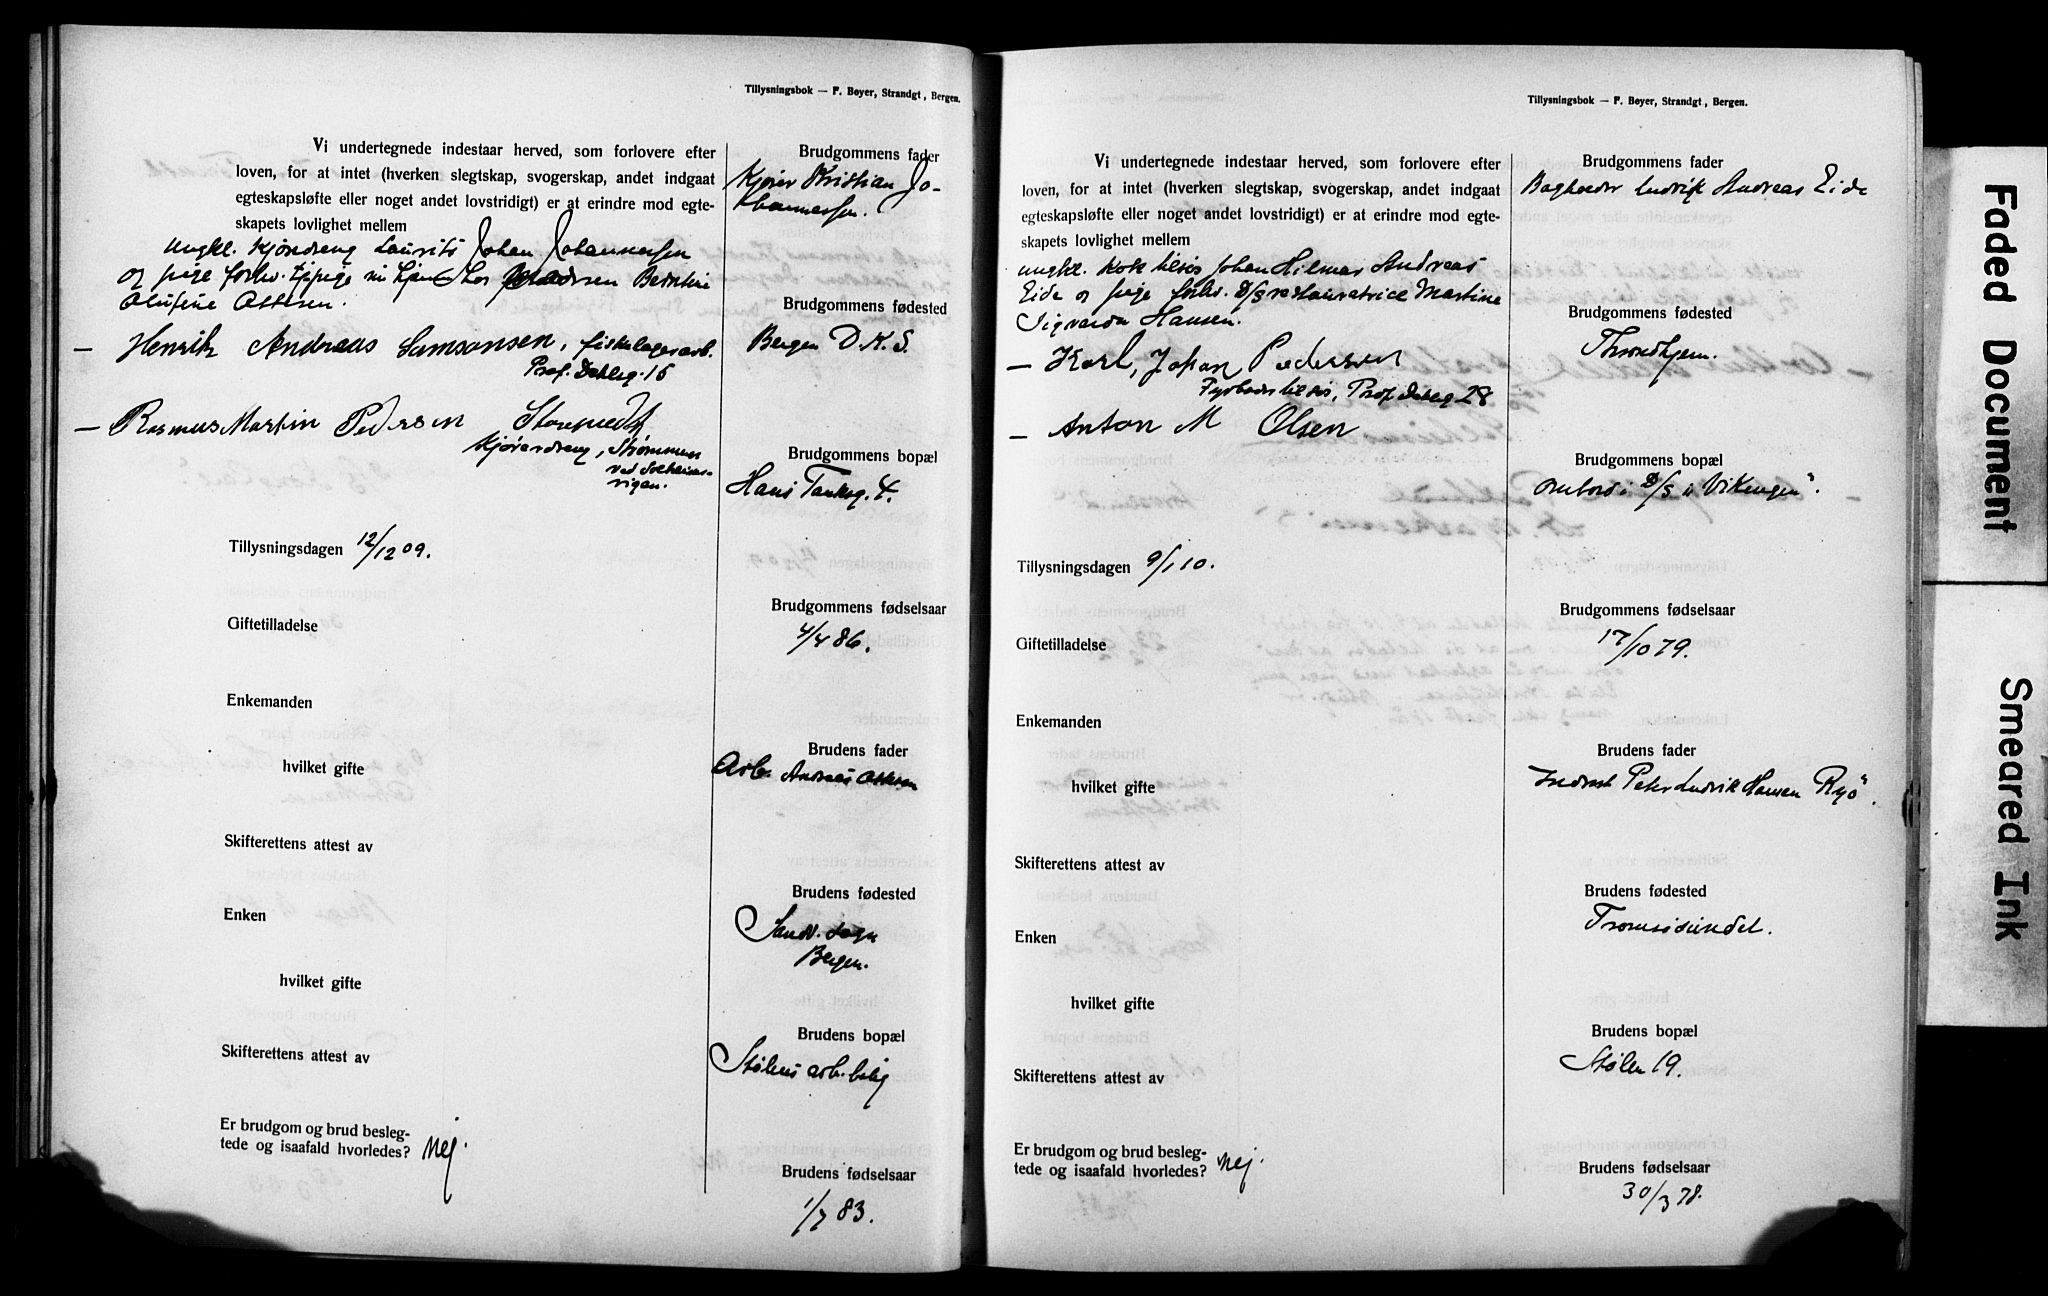 Tillysningsbok — F. Bøyer, Strandgt, Bergen.
Vi undertegnede indestaar herved, som forlovere efter
loven, for at intet (hverken slegtskap, svogerskap, andet indgaat
egteskapsløfte eller noget andet lovstridigt) er at erindre mod egte-
skapets lovlighet mellem
ungkl. Kjøredreng Laurits Johan Johannessen
og pige forlv. tjpige Berntine
Olufine Ottesen.
— Henrik Andreas Samsonsen, fiskelagerarb.
Prof. Dahlsg. 15
— Rasmus Martin Pedersen Storspedt
Kjøredreng, Strømmen
ved Solheims-
vigen.
Tillysningsdagen 12/12 09.
Giftetilladelse
Enkemanden
hvilket gifte
Skifterettens attest av
Enken
hvilket gifte
Skifterettens attest av
Er brudgom og brud besleg-
tede og isaafald hvorledes? Nej.
Brudgommens fader
Kjører Kristian Jo-
hannessen.
Brudgommens fødested
Bergen D. K. S.
Brudgommens bopæl
Hans Tanksg. 4.
Brudgommens fødselsaar
4/4 86.
Brudens fader
Arb. Andreas Ottesen
Brudens fødested
Sandv. sogn
Bergen.
Brudens bopæl
Stølens arb.bolig
Brudens fødselsaar
1/7 83.
Tillysningsbok — F. Bøyer, Strandgt, Bergen.
Vi undertegnede indestaar herved, som forlovere efter
loven, for at intet (hverken slegtskap, svogerskap, andet indgaat
egteskapsløfte eller noget andet lovstridigt) er at erindre mod egte-
skapets lovlighet mellem
ungkl. Kok tilsjøs Johan Hilmar Andreas
Eide og pige forlv. D/S restauratrice Martine
Sigvarda Hansen.
— Karl, Johan Pedersen
Fyrbøder tilsjøs, Prof. Dahlsg 28
— Anton M Olsen
Tillysningsdagen 9/1 10.
Giftetilladelse
Enkemanden
hvilket gifte
Skifterettens attest av
Enken
hvilket gifte
Skifterettens attest av
Er brudgom og brud besleg-
tede og isaafald hvorledes? Nej.
Brudgommens fader
Bogholder Ludvik Andreas Eide
Brudgommens fødested
Throndhjem.
Brudgommens bopæl
ombord i D/S „Vikingen".
Brudgommens fødselsaar
17/10 79.
Brudens fader
Indrest Peter Ludvik Hansen Ryø.
Brudens fødested
Tromsøsundet.
Brudens bopæl
Stølen 19.
Brudens fødselsaar
30/3 78.
Faded Document
Smeared Ink